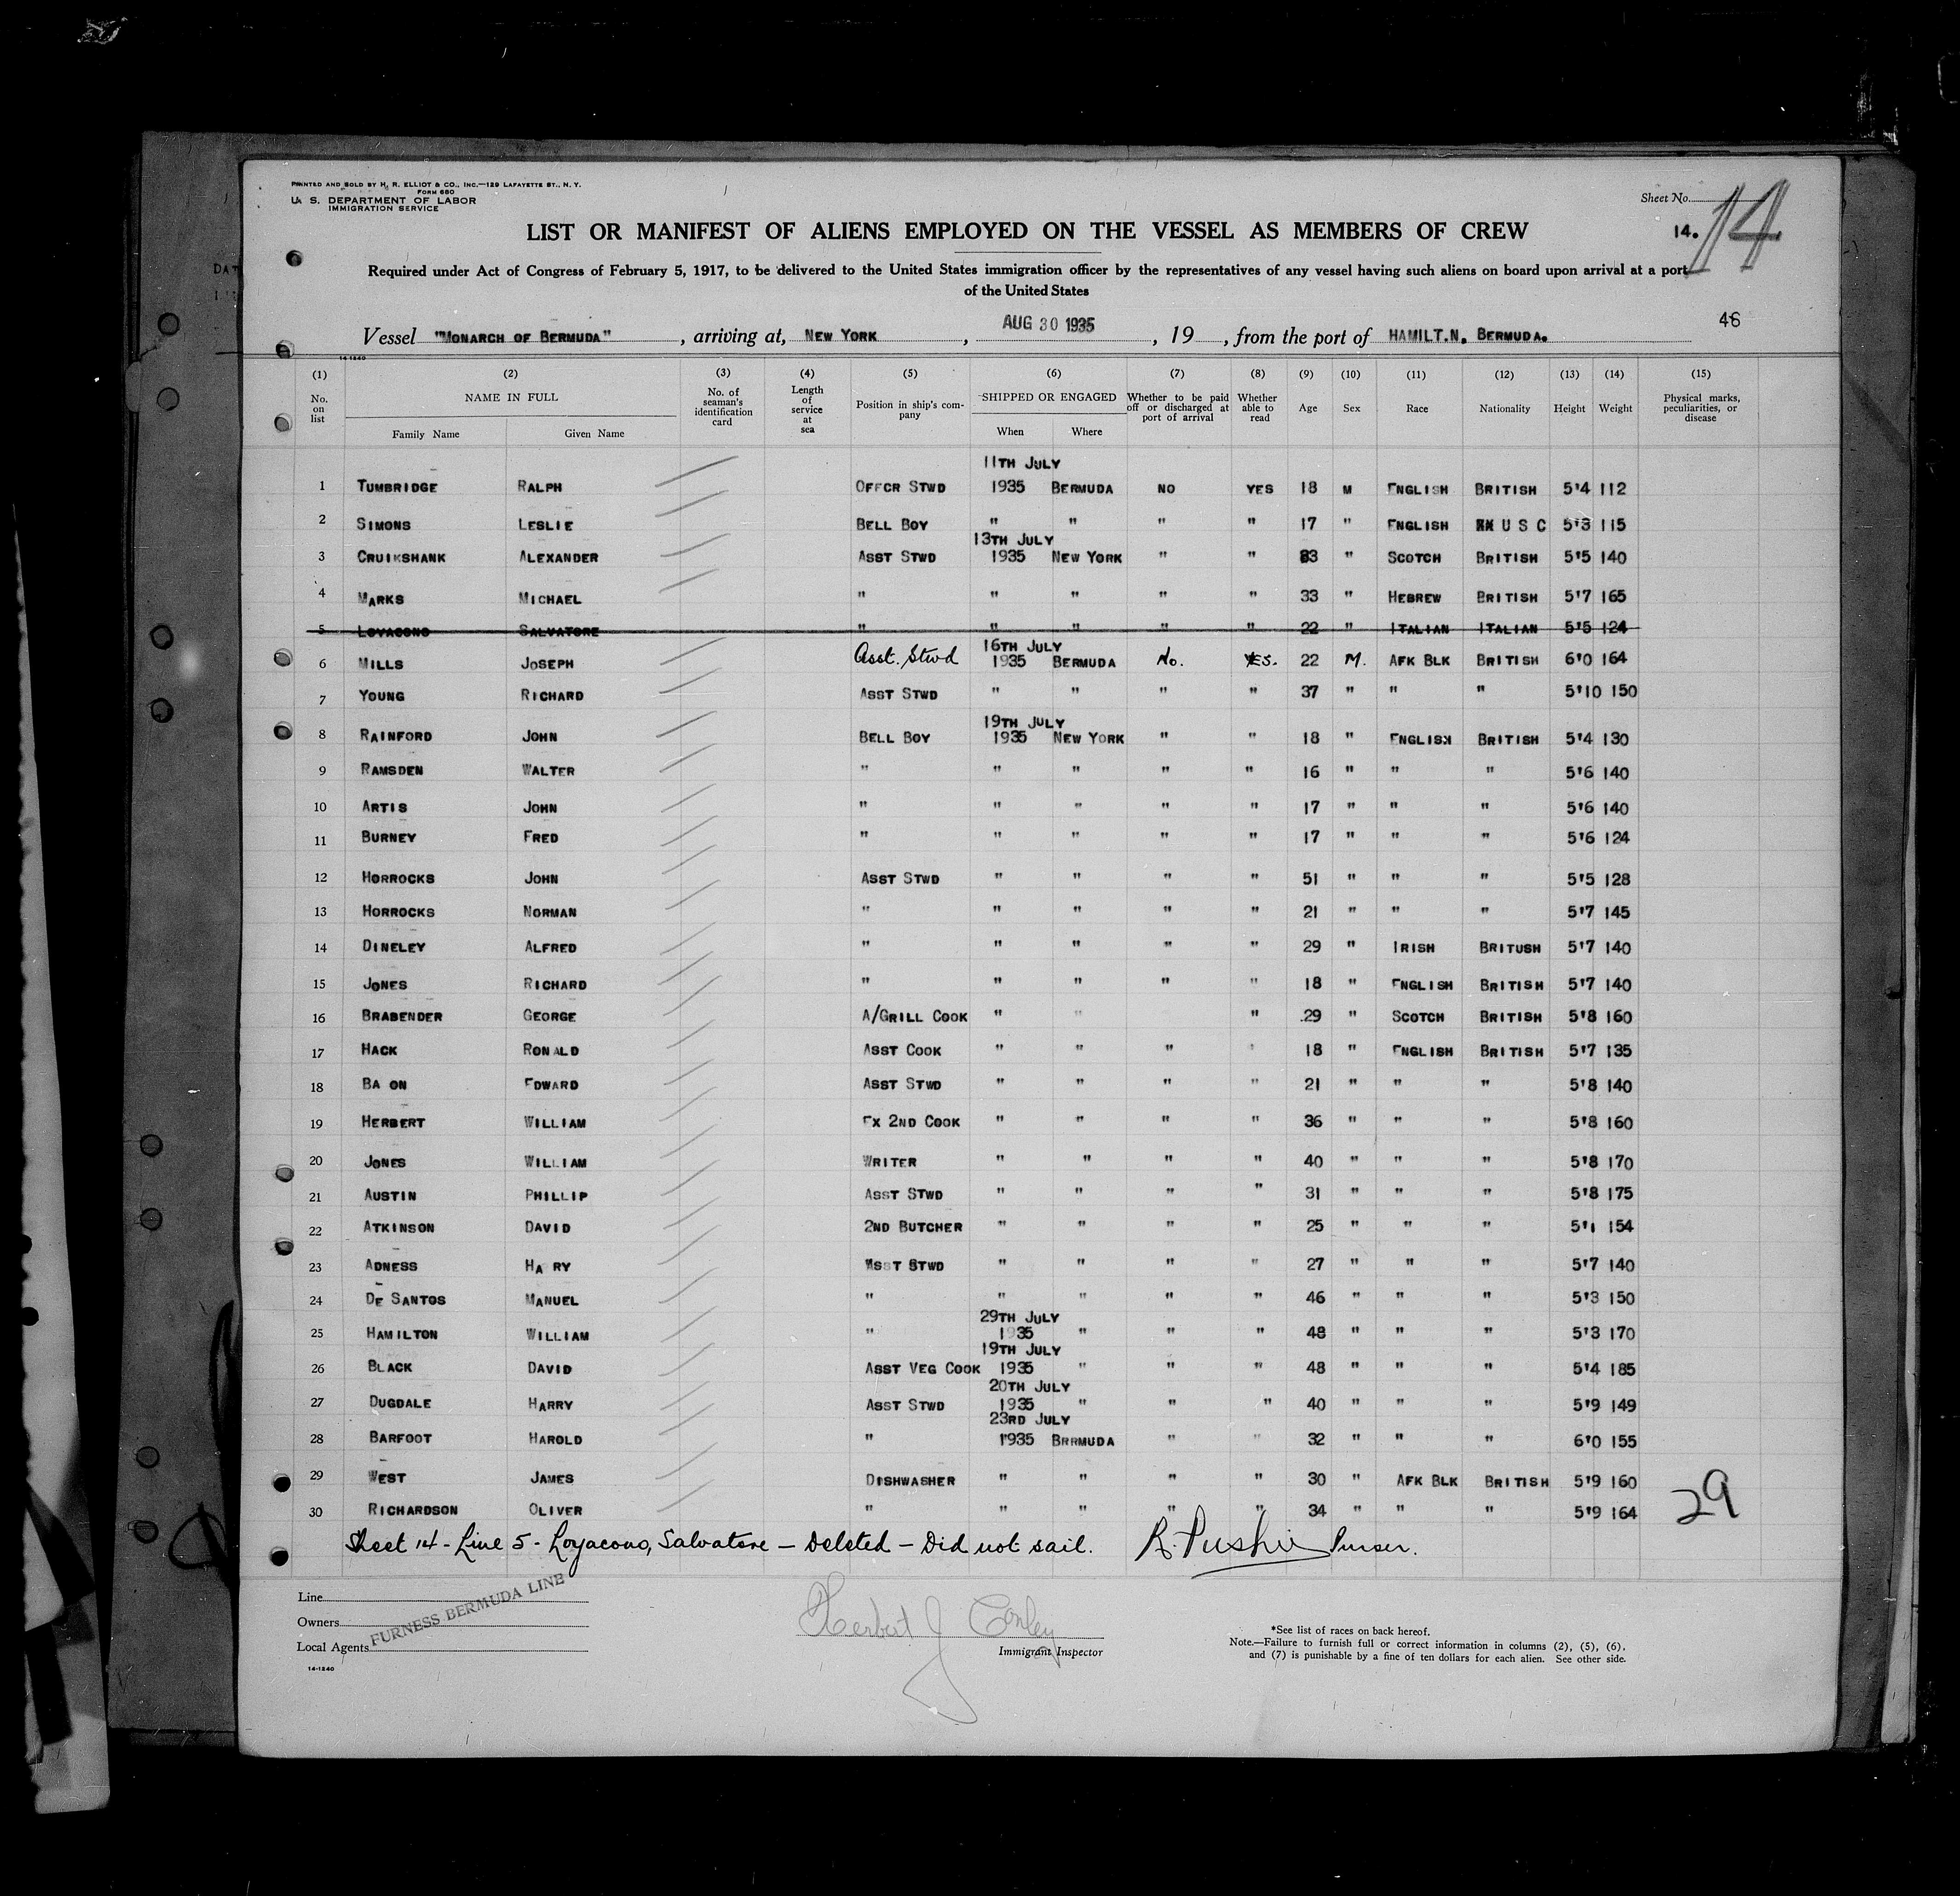 PRINTED AND SOLD BY H. R. ELLIOT & CO., INC.—129 LAFAYETTE ST., N. Y.
FORM 680
U. S. DEPARTMENT OF LABOR
IMMIGRATION SERVICE
Sheet No.
14. 14
LIST OR MANIFEST OF ALIENS EMPLOYED ON THE VESSEL AS MEMBERS OF CREW
Required under Act of Congress of February 5, 1917, to be delivered to the United States immigration officer by the representatives of any vessel having such aliens on board upon arrival at a port
of the United States
48
Vessel "MONARCH OF BERMUDA", arriving at, NEW YORK, AUG 30 1935, 19, from the port of HAMILT.N, BERMUDA.
14-1240
(1) (2) (3) (4) (5) (6) (7) (8) (9) (10) (11) (12) (13) (14) (15)
No. on list NAME IN FULL No. of seaman's identification card Length of service at sea Position in ship's company SHIPPED OR ENGAGED Whether to be paid off or discharged at port of arrival Whether able to read Age Sex Race Nationality Height Weight Physical marks, peculiarities, or disease
Family Name Given Name When Where
11TH JULY
1 TUMBRIDGE RALPH OFFCR STWD 1935 BERMUDA NO YES 18 M ENGLISH BRITISH 5'4 112
2 SIMONS LESLIE BELL BOY " " " " 17 " ENGLISH U S C 5'3 115
13TH JULY
3 CRUIKSHANK ALEXANDER ASST STWD 1935 NEW YORK " " 33 " SCOTCH BRITISH 5'5 140
4 MARKS MICHAEL " " " " " 33 " HEBREW BRITISH 5'7 165
5 LOYACONO SALVATORE " " " " " 22 " ITALIAN ITALIAN 5'5 124
16TH JULY
6 MILLS JOSEPH Asst. Stwd 1935 BERMUDA No. YES. 22 M. AFK BLK BRITISH 6'0 164
7 YOUNG RICHARD ASST STWD " " " " 37 " " " 5'10 150
19TH JULY
8 RAINFORD JOHN BELL BOY 1935 NEW YORK " " 18 " ENGLISH BRITISH 5'4 130
9 RAMSDEN WALTER " " " " " 16 " " " 5'6 140
10 ARTIS JOHN " " " " " 17 " " " 5'6 140
11 BURNEY FRED " " " " " 17 " " " 5'6 124
12 HORROCKS JOHN ASST STWD " " " " 51 " " " 5'5 128
13 HORROCKS NORMAN " " " " " 21 " " " 5'7 145
14 DINELEY ALFRED " " " " " 29 " IRISH BRITUSH 5'7 140
15 JONES RICHARD " " " " " 18 " ENGLISH BRITISH 5'7 140
16 BRABENDER GEORGE A/GRILL COOK " " " 29 " SCOTCH BRITISH 5'8 160
17 HACK RONALD ASST COOK " " " " 18 " ENGLISH BRITISH 5'7 135
18 BA ON EDWARD ASST STWD " " " " 21 " " " 5'8 140
19 HERBERT WILLIAM EX 2ND COOK " " " " 36 " " " 5'8 160
20 JONES WILLIAM WRITER " " " " 40 " " " 5'8 170
21 AUSTIN PHILLIP ASST STWD " " " " 31 " " " 5'8 175
22 ATKINSON DAVID 2ND BUTCHER " " " " 25 " " " 5'1 154
23 ADNESS HA RY STWD " " " " 27 " " " 5'7 140
24 DE SANTOS MANUEL " " " " " 46 " " " 5'3 150
29TH JULY
25 HAMILTON WILLIAM " 1935 " " " 48 " " " 5'3 170
19TH JULY
26 BLACK DAVID ASST VEG COOK 1935 " " " 48 " " " 5'4 185
20TH JULY
27 DUGDALE HARRY ASST STWD 1935 " " " 40 " " " 5'9 149
23RD JULY
28 BARFOOT HAROLD " 1935 BRRMUDA " " 32 " " " 6'0 155
29 WEST JAMES DISHWASHER " " " " 30 " AFK BLK BRITISH 5'9 160
30 RICHARDSON OLIVER " " " " " 34 " " " 5'9 164
29
Sheet 14 - Line 5 - Loyacono, Salvatore — Deleted — Did not sail. R. Pushie Purser.
Line
Owners
Local Agents
FURNESS BERMUDA LINE
14-1240
Herbert J Conley
Immigrant Inspector
*See list of races on back hereof.
Note.—Failure to furnish full or correct information in columns (2), (5), (6),
and (7) is punishable by a fine of ten dollars for each alien. See other side.